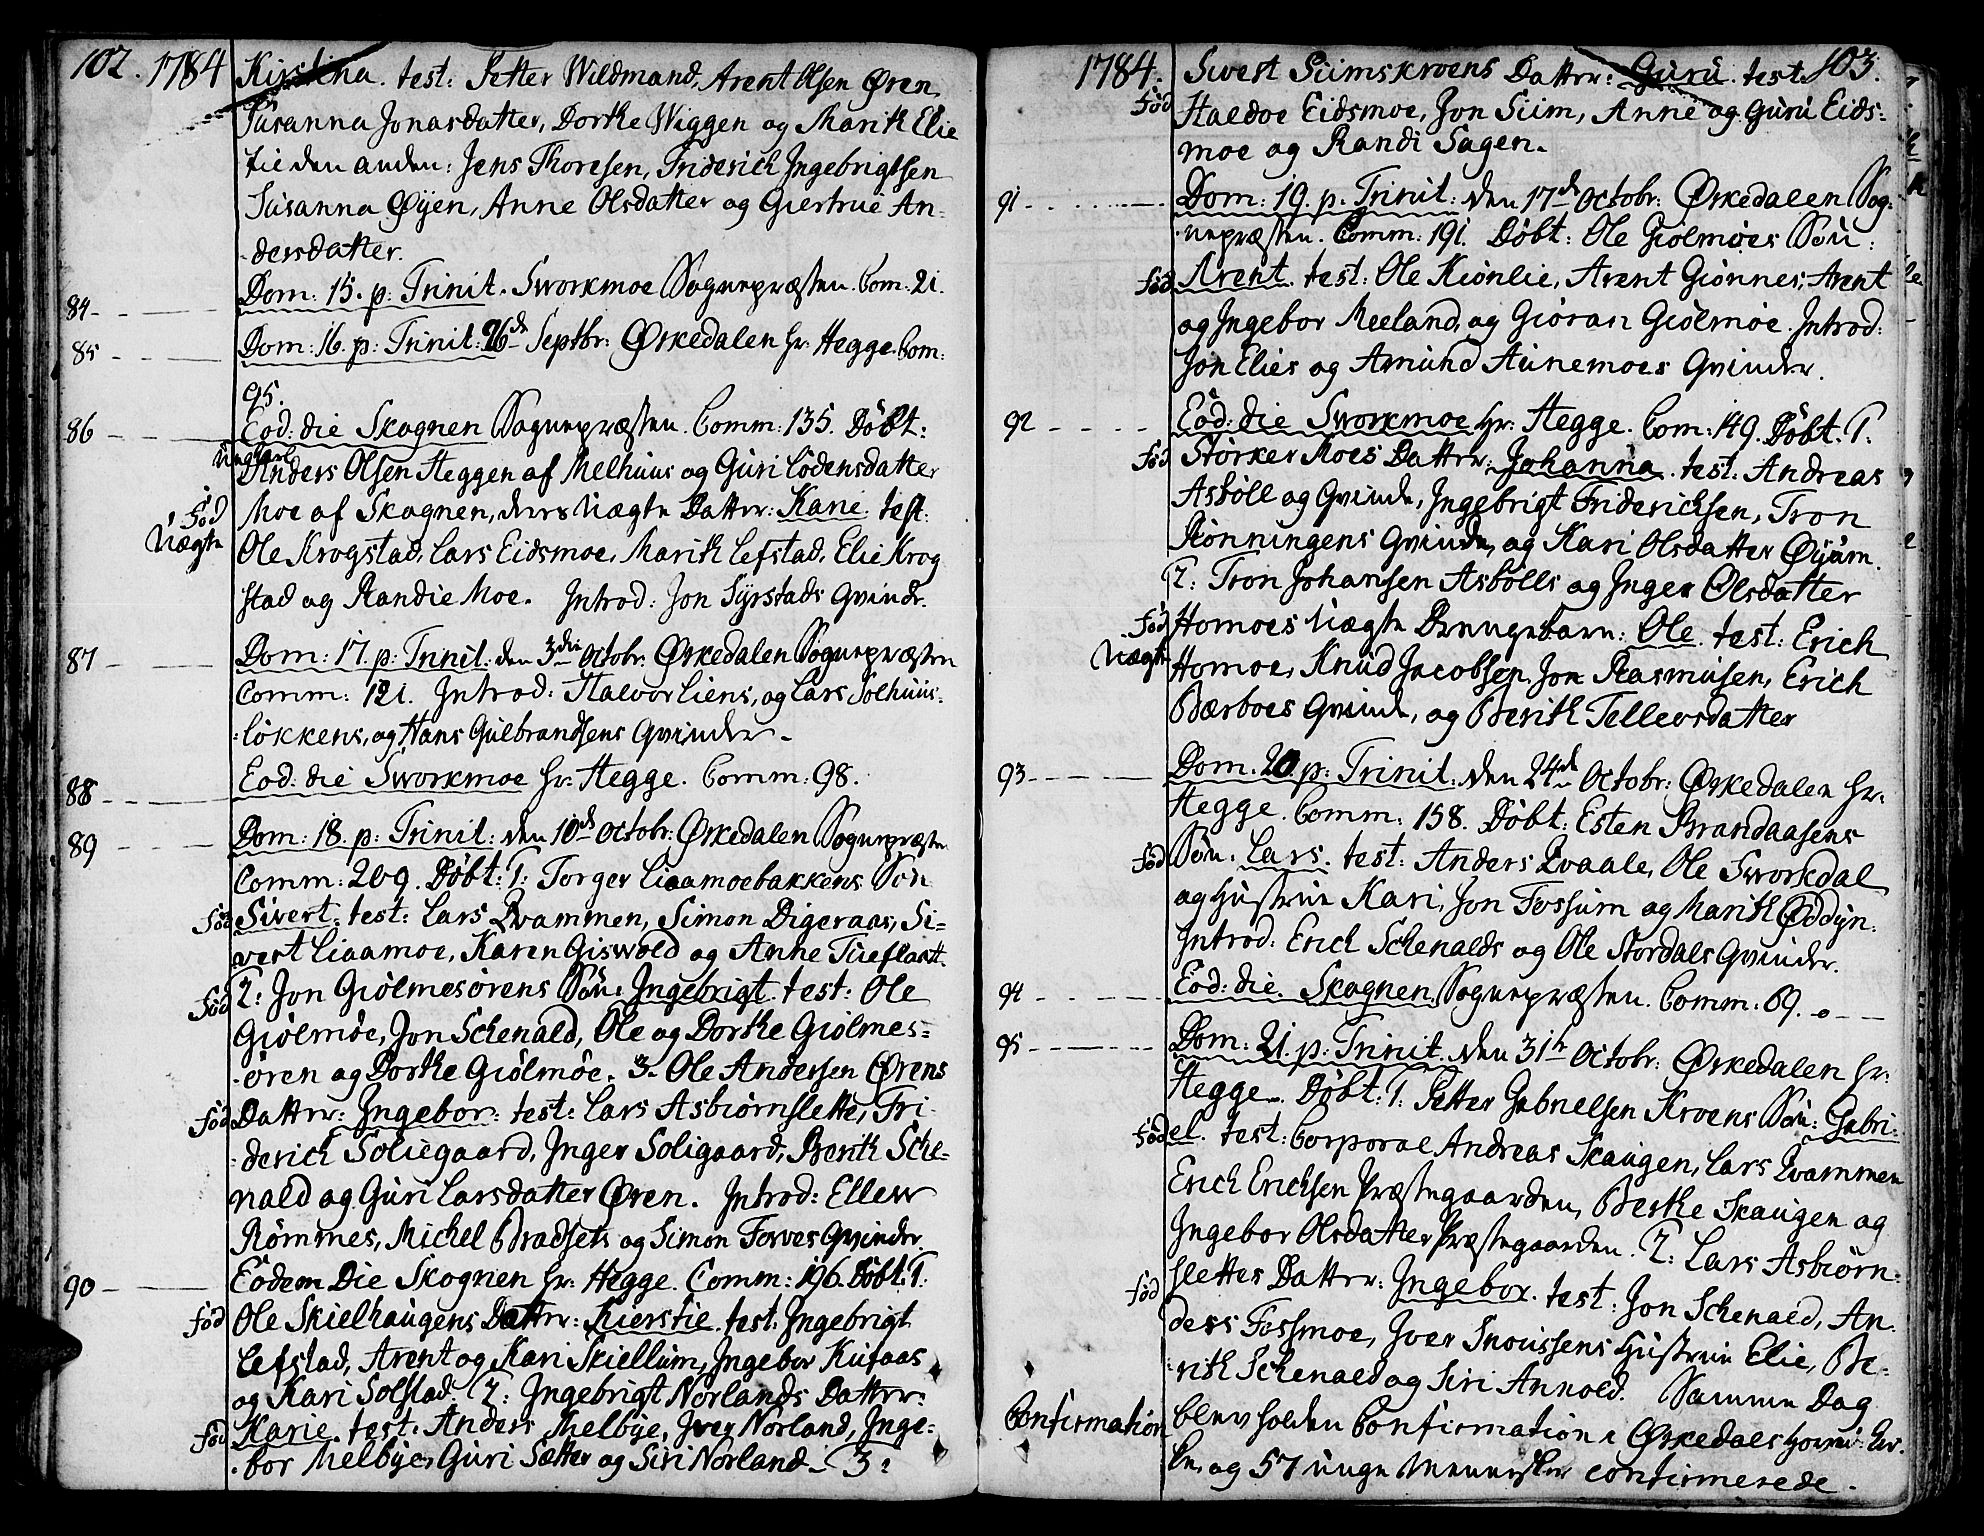 102. 1784
Kirstina. test: Petter Wildmand, Arent Olsen Øren,
Susanna Jonasdatter, Dorthe Wiggen og Marith Elie
til den anden: Jens Thoresen, Friderich Ingebrigtsen
Susanna Øyen, Anne Olsdatter og Giertrue An-
dersdatter.
84 Dom: 15. p: Trinit. Sworkmoe Sognepræsten. Com: 21.
85 Dom: 16. p: Trinit: 26de Septbr: Ørkedalen hr: Hegge. Com:
95.
86 Eod: die Skognen Sognepræsten. Comm: 135. Døbt:
Ungkarl
Anders Olsen Heggen af Melhuus og Guri Lodensdatter
Fød Moe af Skognen, deres Uægte Datter: Karie. test:
Uægte Ole Krogstad, Lars Eidsmoe, Marith Lefstad, Elie Krog
stad og Randie Moe. Introd: Jon Syrstads Qvinde.
87 Dom: 17. p: Trinit: den 3die Octobr: Ørkedalen Sognepræsten
Comm: 121. Introd: Halvor Liens, og Lars Solhuus-
løkkens, og Hans Gulbrandsens Qvinder.
88 Eod: die Sworkmoe hr: Hegge. Comm: 98.
89 Dom: 18. p: Trinit: den 10de Octobr: Ørkedalen Sognepræsten
Comm: 209. Døbt: 1: Torger Liaamoebakkens Søn
Fød Sivert. test: Lars Qvammen, Simon Digeraas, Si-
vert Liaamoe, Karen Giswold og Anne Tueflaatt.
Fød 2: Jon Giølmesørens Søn: Ingebrigt. test: Ole
Giølmøe, Jon Schenald, Ole og Dorthe Giølmes-
øren og Dorthe Giølmøe. 3. Ole Andersen Ørens
Fød Datter: Ingebor: test: Lars Asbiørnslette, Fri-
derich Soliegaard, Inger Soligaard, Berith Sche-
nald og Guri Larsdatter Øren. Introd: Ellew
Rømmes, Michel Bradsets og Simon Forves Qvinder.
90 Eodem Die Skognen hr: Hegge. Comm: 196. Døbt: 1:
Fød Ole Skielhaugens Datter: Kierstie. test: Ingebrigt
Lefstad, Arent og Kari Skiellum, Ingebor Kufaas
og Kari Solstad. 2: Ingebrigt Norlands Datter:
Fød Karie. test: Anders Melbye, Iver Norland, Inge-
bor Melbye, Guri Sætter og Siri Norland. 3:
1784. 103.
Sivert Suimskroens Datter: Guru. test:
Fød Haldoe Eidsmoe, Jon Suim, Anne og Guru Eids-
moe og Randi Sagen.
91 Dom: 19. p. Trinit: den 17de Octobr: Ørkedalen Sog-
nepræsten. Comm: 191. Døbt: Ole Giølmøes Søn:
Fød Arent. test: Ole Kiønlie, Arent Giønnes, Arent
og Ingebor Meeland, og Giøran Giølmøe. Introd:
Jon Elies og Amund Aunemoes Qvinder.
92 Eod: die Sworkmoe hr: Hegge. Com: 149. Døbt: 1:
Fød Størker Moes Datter: Johanna. test: Andreas
Asbøll og Qvinde, Ingebrigt Friderichsen, Tron
Rønningens Qvinde, og Kari Olsdatter Øyum.
2: Tron Johansen Asbølls og Inger Olsdatter
Fød Homoes Uægte Drengebarn: Ole. test: Erich
Uægte Homoe, Knud Jacobsen, Jon Rasmusen, Erich
Bærboes Qvinde, og Berith Tellevsdatter
93 Dom. 20. p: Trinit: den 24de Octobr: Ørkedalen hr:
Hegge. Comm: 158. Døbt: Esten Brandaasens
Fød Søn: Lars. test: Anders Qvaale, Ole Sworkdal
og Hustrue Kari, Jon Fossum og Marith Øddyn.
Introd: Erich Schenalds og Ole Stordals Qvinder.
94 Eod: die. Skognen. Sognepræsten. Comm: 69.
95 Dom: 21. p: Trinit. den 31te Octobr: Ørkedalen hr:
Hegge. Døbt: 1: Petter Gabrielsen Kroens Søn: Gabri-
Fød el. test: Corporal Andreas Skaugen, Lars Qvammen
Erich Erichsen Præstegaarden, Berthe Skaugen og
Ingebor Olsdatter Præstegaarden. 2: Lars Asbiørn-
Fød slettes Datter: Ingebor. test: Jon Schenald, An-
ders Fossmoe, Iver Snoussens Hustrue Elie, Be-
rith Schenald og Siri Annold. Samme Dag
Confirmation blev holden Confirmation i Ørkedals Hoved Kir-
ke, og 57 unge Mennesker confirmerede.